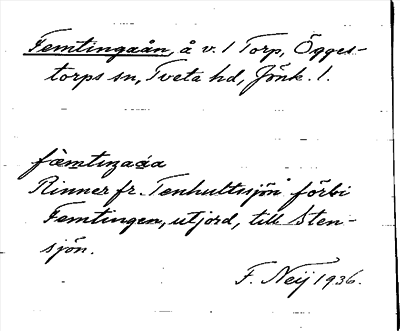 Femtingaån, å v. l Torp, Ögges-
torps sn, Tveta hd, Jönk. l.
Rinner fr. Tenhultssjön förbi
Femtingen, utjord, till Sten-
sjön.
F. Neij 1936.